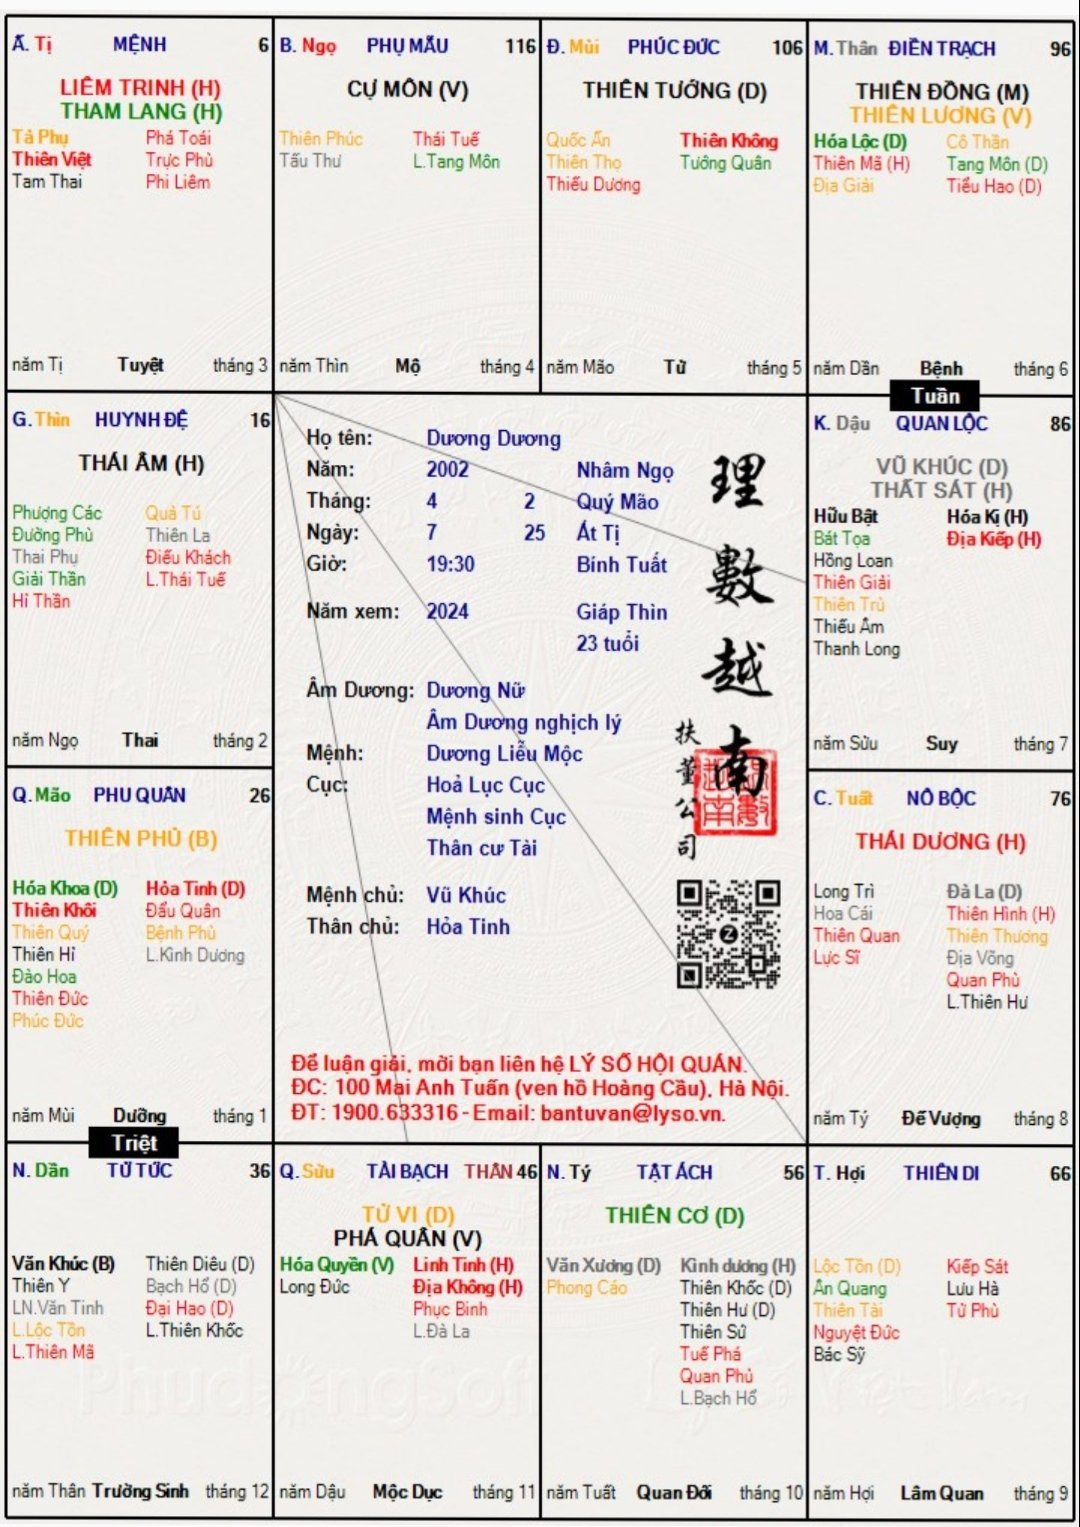 Ấ. Tị MỆNH 6
LIÊM TRINH (H)
THAM LANG (H)
Tả Phụ Phá Toái
Thiên Việt Trực Phù
Tam Thai Phi Liêm
năm Tị Tuyệt tháng 3
B. Ngọ PHỤ MẪU 116
CỰ MÔN (V)
Thiên Phúc Thái Tuế
Tấu Thư L.Tang Môn
năm Thìn Mộ tháng 4
Đ. Mùi PHÚC ĐỨC 106
THIÊN TƯỚNG (D)
Quốc Ấn Thiên Không
Thiên Thọ Tướng Quân
Thiếu Dương
năm Mão Tử tháng 5
M. Thân ĐIỀN TRẠCH 96
THIÊN ĐỒNG (M)
THIÊN LƯƠNG (V)
Hóa Lộc (D) Cô Thần
Thiên Mã (H) Tang Môn (D)
Địa Giải Tiểu Hao (D)
năm Dần Bệnh tháng 6
Tuần
G. Thìn HUYNH ĐỆ 16
THÁI ÂM (H)
Phượng Các Quả Tú
Đường Phù Thiên La
Thai Phụ Điếu Khách
Giải Thần L.Thái Tuế
Hỉ Thần
năm Ngọ Thai tháng 2
Họ tên: Dương Dương
Năm: 2002 Nhâm Ngọ
Tháng: 4 2 Quý Mão
Ngày: 7 25 Ất Tị
Giờ: 19:30 Bính Tuất
Năm xem: 2024 Giáp Thìn
23 tuổi
Âm Dương: Dương Nữ
Âm Dương nghịch lý
Mệnh: Dương Liễu Mộc
Cục: Hoả Lục Cục
Mệnh sinh Cục
Thân cư Tài
Mệnh chủ: Vũ Khúc
Thân chủ: Hỏa Tinh
理數越南
扶董公司
Để luận giải, mời bạn liên hệ LÝ SỐ HỘI QUÁN.
ĐC: 100 Mai Anh Tuấn (ven hồ Hoàng Cầu), Hà Nội.
ĐT: 1900.633316 - Email: bantuvan@lyso.vn.
K. Dậu QUAN LỘC 86
VŨ KHÚC (D)
THẤT SÁT (H)
Hữu Bật Hóa Kị (H)
Bát Tọa Địa Kiếp (H)
Hồng Loan
Thiên Giải
Thiên Trù
Thiếu Âm
Thanh Long
năm Sửu Suy tháng 7
Q. Mão PHU QUÂN 26
THIÊN PHỦ (B)
Hóa Khoa (D) Hỏa Tinh (D)
Thiên Khôi Đẩu Quân
Thiên Quý Bệnh Phù
Thiên Hỉ L.Kình Dương
Đào Hoa
Thiên Đức
Phúc Đức
năm Mùi Dưỡng tháng 1
Triệt
C. Tuất NÔ BỘC 76
THÁI DƯƠNG (H)
Long Trì Đà La (D)
Hoa Cái Thiên Hình (H)
Thiên Quan Thiên Thương
Lực Sĩ Địa Võng
Quan Phù
L.Thiên Hư
năm Tý Đế Vượng tháng 8
N. Dần TỬ TỨC 36
Văn Khúc (B) Thiên Diêu (D)
Thiên Y Bạch Hổ (D)
LN.Văn Tinh Đại Hao (D)
L.Lộc Tồn L.Thiên Khốc
L.Thiên Mã
năm Thân Trường Sinh tháng 12
Q. Sửu TÀI BẠCH THÂN 46
TỬ VI (D)
PHÁ QUÂN (V)
Hóa Quyền (V) Linh Tinh (H)
Long Đức Địa Không (H)
Phục Binh
L.Đà La
năm Dậu Mộc Dục tháng 11
N. Tý TẬT ÁCH 56
THIÊN CƠ (D)
Văn Xương (D) Kình dương (H)
Phong Cáo Thiên Khốc (D)
Thiên Hư (D)
Thiên Sứ
Tuế Phá
Quan Phủ
L.Bạch Hổ
năm Tuất Quan Đới tháng 10
T. Hợi THIÊN DI 66
Lộc Tồn (D) Kiếp Sát
Ân Quang Lưu Hà
Thiên Tài Tử Phù
Nguyệt Đức
Bác Sỹ
năm Hợi Lâm Quan tháng 9